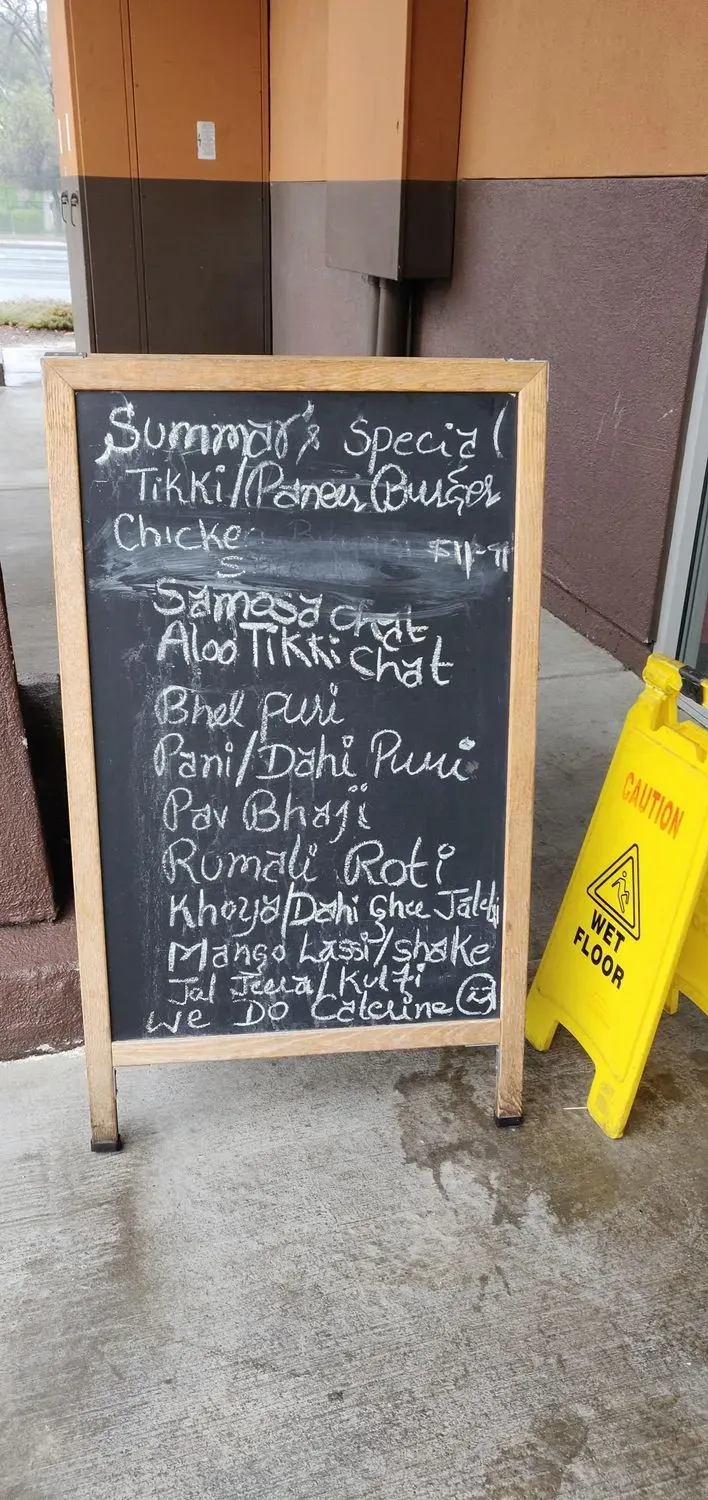 Summar's Special
Tikki/Paneer Burger
Chicke
$11-99
Samosa chat
Aloo Tikki chat
Bhel puri
Pani/Dahi Puri
Pav Bhaji
Rumali Roti
Khoya/Dahi Ghee Jalebi
Mango Lassi/shake
Jal Jeera/Kulfi
We Do Caterine
CAUTION
WET
FLOOR